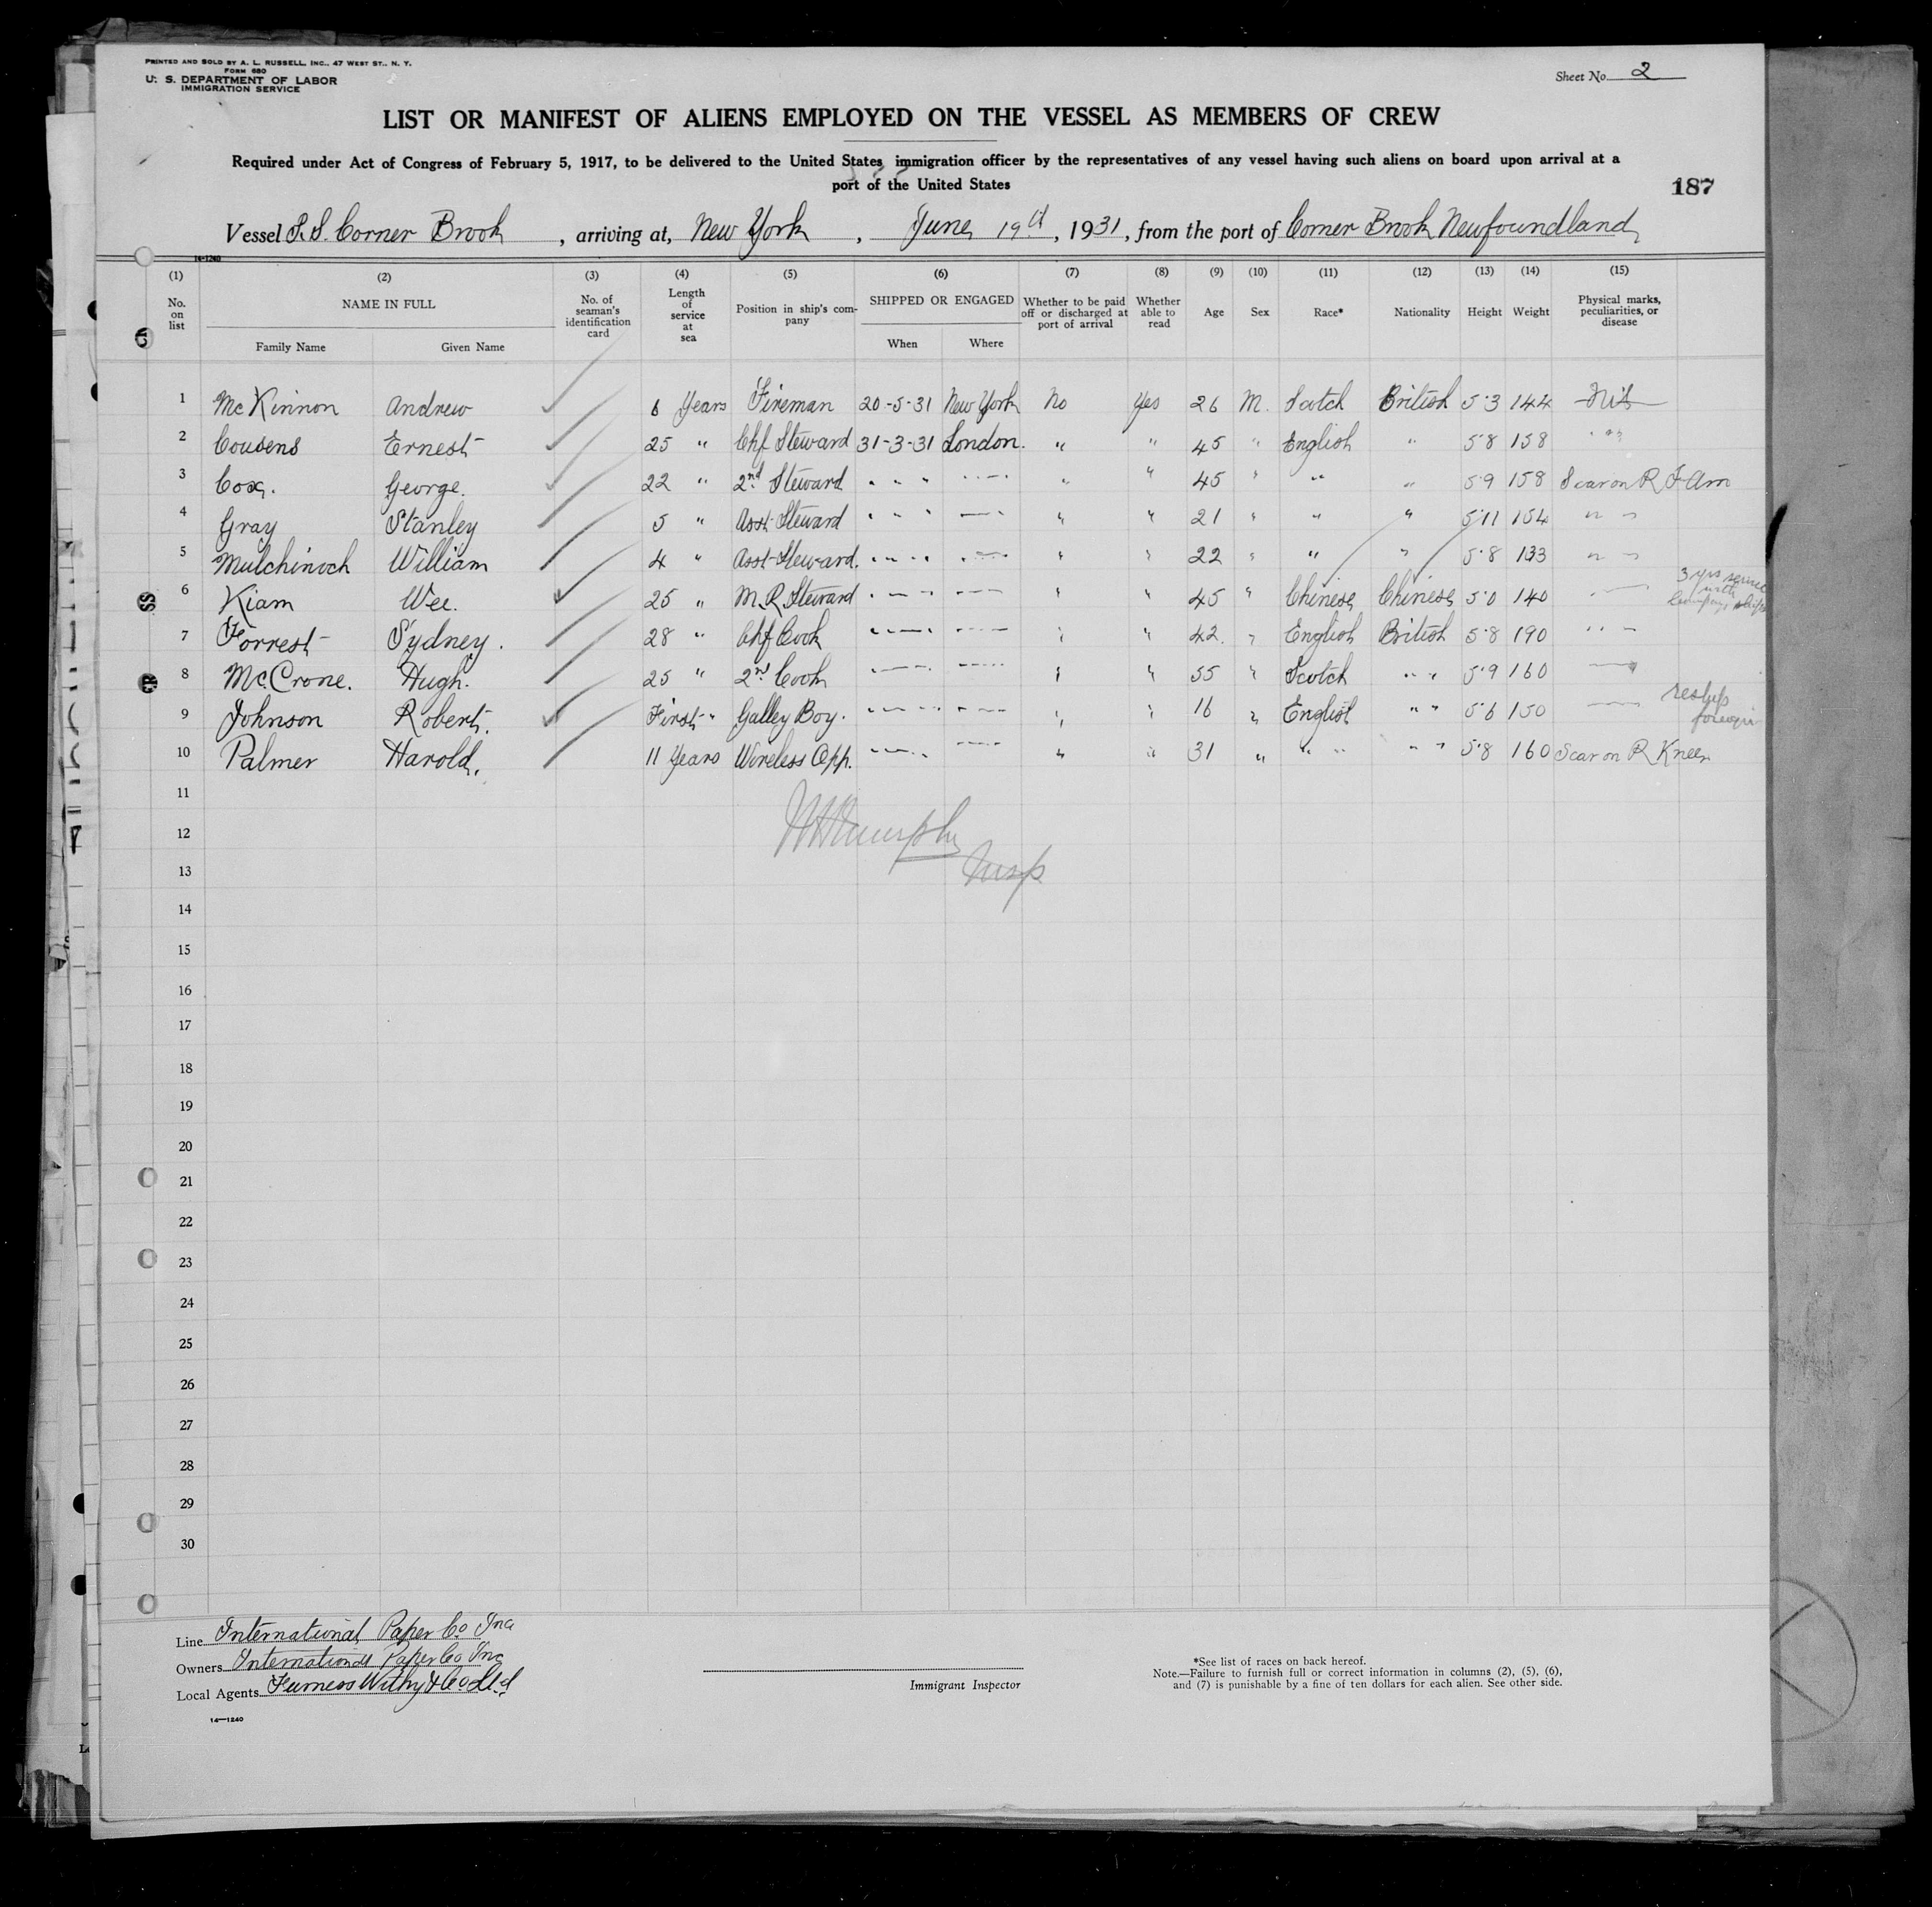 PRINTED AND SOLD BY A. L. RUSSELL, INC., 47 WEST ST., N. Y.
FORM 680
U. S. DEPARTMENT OF LABOR
IMMIGRATION SERVICE
Sheet No. 2
LIST OR MANIFEST OF ALIENS EMPLOYED ON THE VESSEL AS MEMBERS OF CREW
Required under Act of Congress of February 5, 1917, to be delivered to the United States immigration officer by the representatives of any vessel having such aliens on board upon arrival at a
port of the United States
187
Vessel S.S. Corner Brook, arriving at, New York, June 19th, 1931, from the port of Corner Brook Newfoundland
14-1240
(1) (2) (3) (4) (5) (6) (7) (8) (9) (10) (11) (12) (13) (14) (15)
No. on list NAME IN FULL Family Name Given Name No. of seaman's identification card Length of service at sea Position in ship's company SHIPPED OR ENGAGED When Where Whether to be paid off or discharged at port of arrival Whether able to read Age Sex Race* Nationality Height Weight Physical marks, peculiarities, or disease
1 McKinnon Andrew 6 Years Fireman 20-5-31 New York No Yes 26 M. Scotch British 5'3 144 Nil
2 Cousens Ernest 25 " Chf Steward 31-3-31 London. " " 45 " English " 5'8 158 " "
3 Cox. George. 22 " 2nd Steward " " " " " " " 45 " " " 5'9 158 Scar on R F Arm
4 Gray Stanley 5 " Asst Steward " " " " " " 21 " " " 5'11 154 " "
5 Mulchinock William 4 " Asst Steward. " " " " " " 22 " " " 5'8 133 " "
6 Kiam Wee. 25 " M.R Steward " " " " " " 45 " Chinese Chinese 5'0 140 " 3 yrs service with Company ships
7 Forrest Sydney. 28 " Chf Cook " " " " " " 42. " English British 5'8 190 " "
8 McCrone. Hugh. 25 " 2nd Cook " " " " " 55 " Scotch " " 5'9 160 "
9 Johnson Robert. First " Galley Boy. " " " " " 16 " English " " 5'6 150 " reships foreign
10 Palmer Harold. 11 Years Wireless Opp. " " " " " 31 " " " " " 5'8 160 Scar on R Knee
11
12
13
Insp
14
15
16
17
18
19
20
21
22
23
24
25
26
27
28
29
30
Line International Paper Co. Inc
Owners International Paper Co Inc
Local Agents Furness Withy & Co Ltd
Immigrant Inspector
*See list of races on back hereof.
Note.—Failure to furnish full or correct information in columns (2), (5), (6),
and (7) is punishable by a fine of ten dollars for each alien. See other side.
14—1240